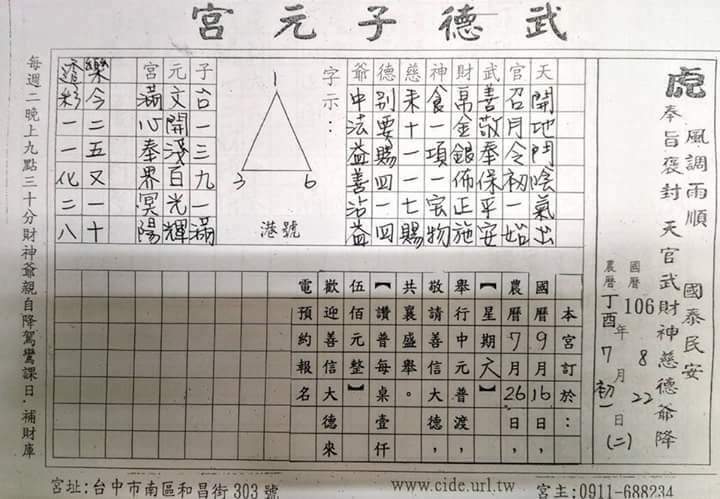 武德子元宮
虎
風調雨順 國泰民安
奉旨褒封 天官武財神慈德爺降
國曆106年8月22日(二)
農曆丁酉年7月初一
天開地門陰氣出
官召月令初一始
武善敬奉保平安
財帛金銀佈正施
神食一項一宝物
慈来十一一七賜
德别要賜四一四
爺中法益善沾益
字示：
1
3 6
港號
子台一三九一滿
元文開淺百光輝
宮滿心奉界冥陽
樂今二五又一十
透彩一一化二八
本宮訂於：
國曆9月16日，
農曆7月26日，
【星期六】
舉行中元普渡，
敬請善信大德，
共襄盛舉。
【讚普每桌壹仟
伍佰元整】
歡迎善信大德來
電預約報名
每週二晚上九點三十分財神爺親自降駕鸞課日．補財庫
宮址:台中市南區和昌街303號
www.cide.url.tw
宮主:0911-688234